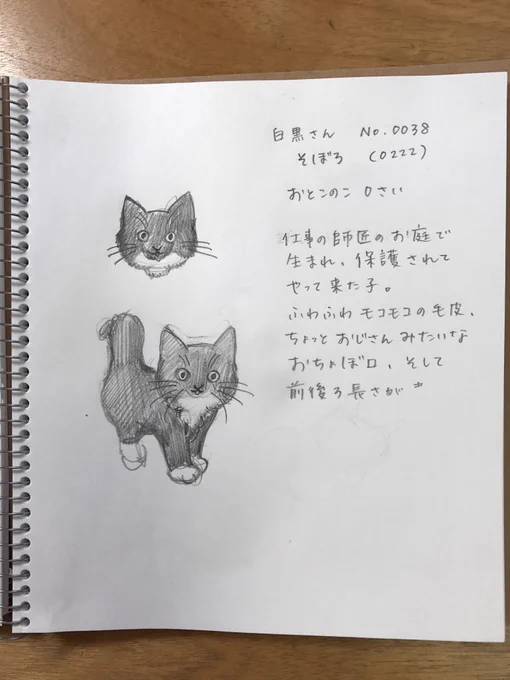 白黒さん No.0038
そぼろ (0222)
おとこのこ 0さい
仕事の師匠のお庭で
生まれ、保護されて
やって来た子。
ふわふわ モコモコの毛皮、
ちょっと おじさん みたいな
おちょぼ口、そして
前後ろ長さが